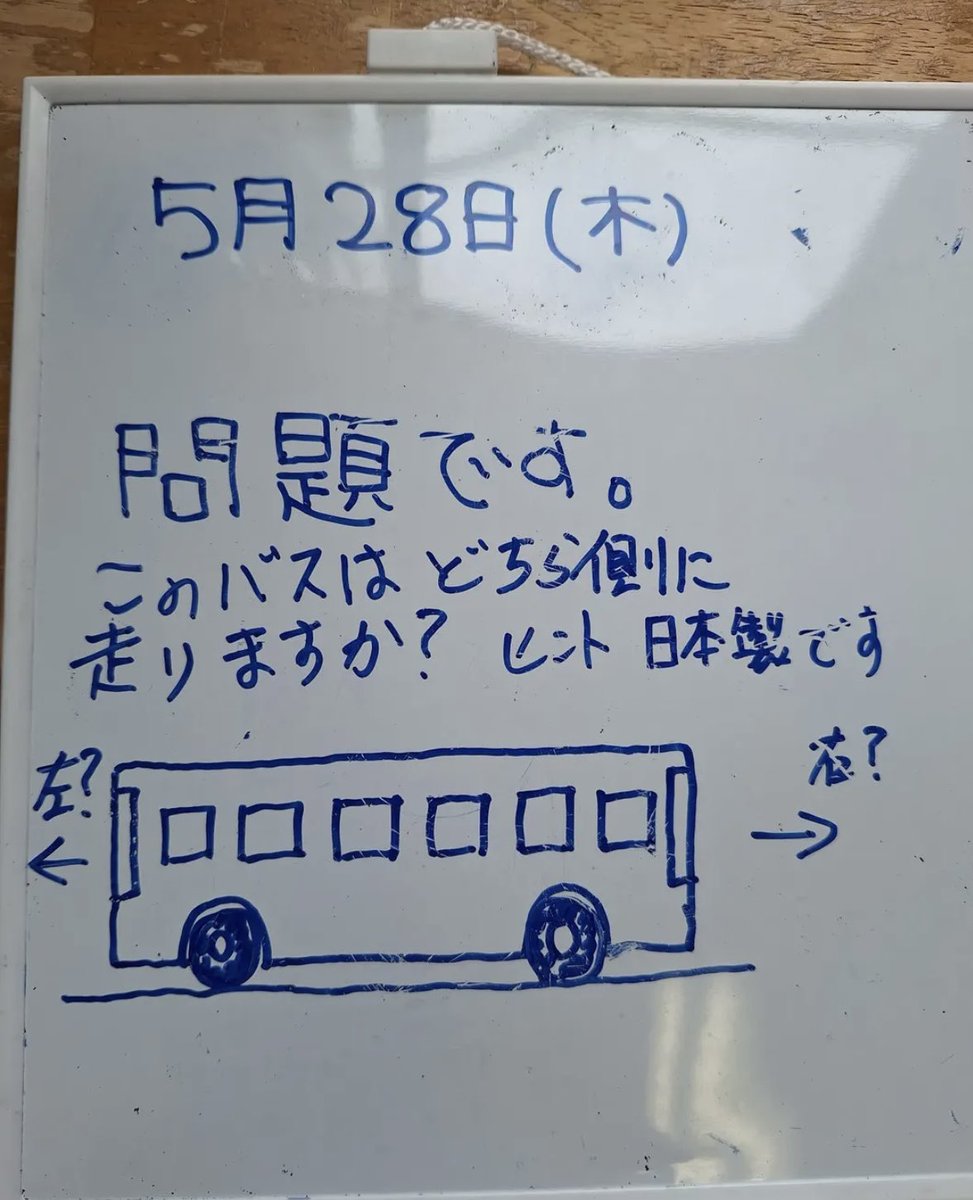 5月28日(木)
問題です。
このバスはどちら側に
走りますか? ヒント 日本製です
左?
右?
←
→